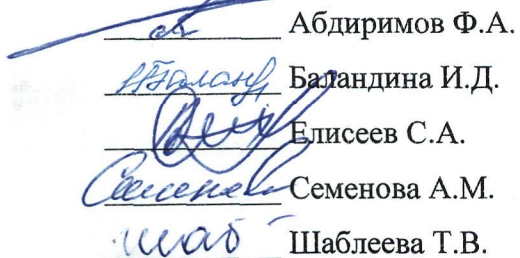 Абдиримов Ф.А.
Баландина И.Д.
Елисеев С.А.
Семенова А.М.
Шаблеева Т.В.